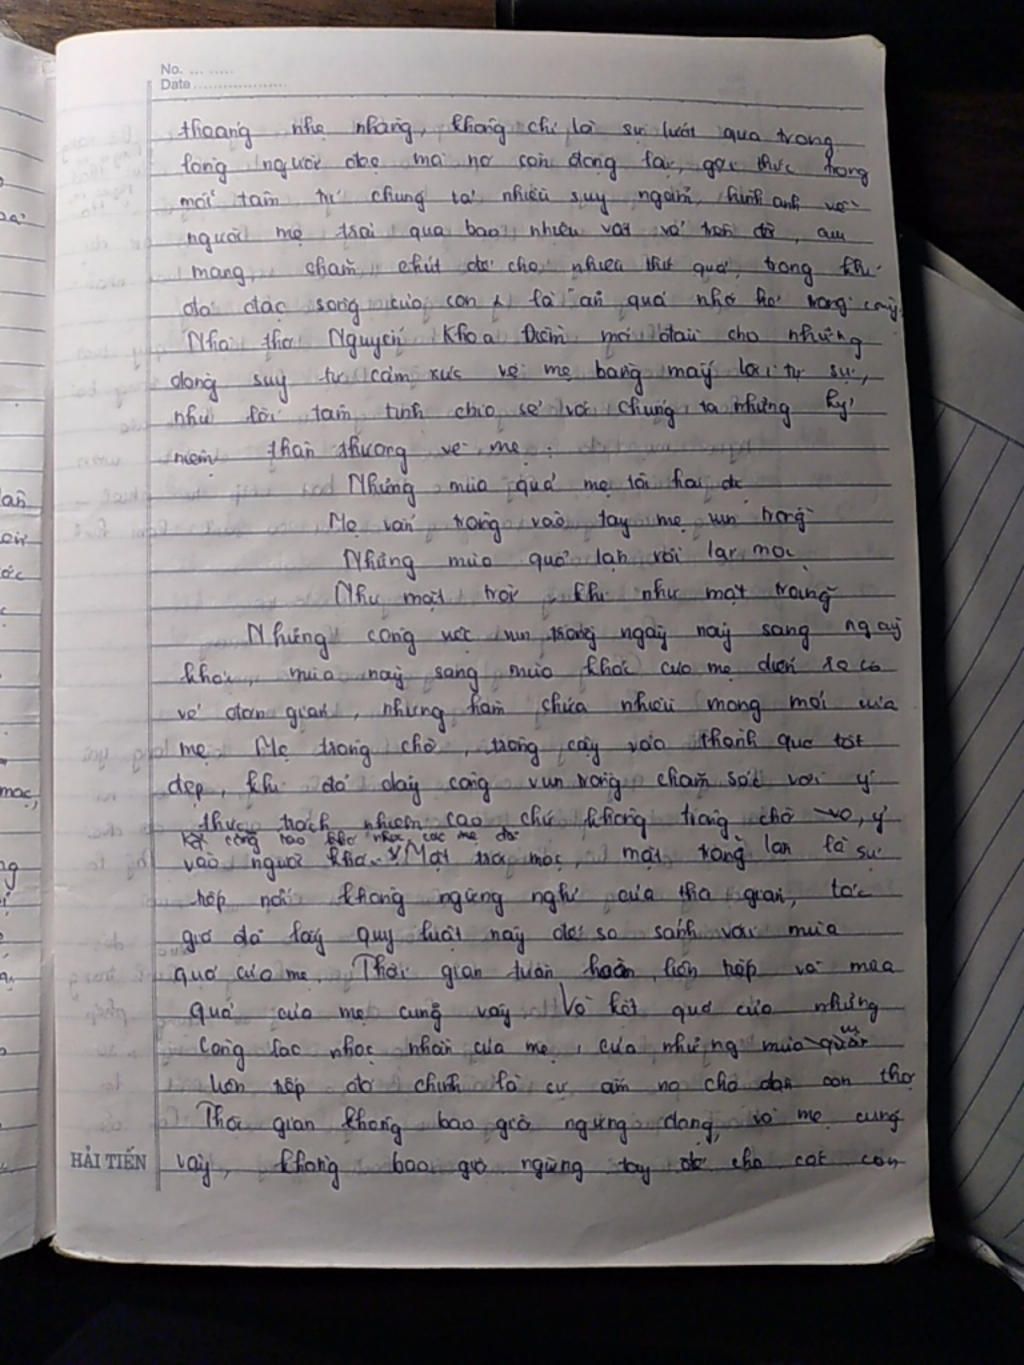 No. ... .....
Date ...................
thoáng nhẹ nhàng, không chỉ là sự lướt qua trong
lòng người đọc mà nó còn đọng lại, gợi thức trong
mỗi tâm trí chúng ta nhiều suy ngẫm, hình ảnh về
người mẹ trải qua bao nhiêu vất vả trên đời,
mang, chăm chút để cho nhiều thứ quả, trong khi
đó đặc song của con là ẩn quả nhớ trong
Nhà thơ Nguyễn Khoa Điềm mở đầu cho những
dòng suy tư cảm xúc về mẹ bằng mấy lời tự sự,
như lời tâm tình chia sẻ với chúng ta những kỷ
niệm thân thương về mẹ :
Những mùa quả mẹ tôi hái được
Mẹ vẫn trông vào tay mẹ vun trồng
Những mùa quả lặn rồi lại mọc
Như mặt trời khi như mặt trăng
Những công việc vun trồng ngày này sang ngày
khác, mùa này sang mùa khác của mẹ diễn ra có
vẻ đơn giản, nhưng hàm chứa nhiều mong mỏi của
mẹ. Mẹ trông chờ, trông cậy vào thành quả tốt
đẹp, khi đó đây công vun trồng chăm sóc với ý
thức trách nhiệm cao chứ không trông chờ vo, ỷ
kết công lao khó nhọc các mẹ đó
vào người khác. v Mặt trời mọc, mặt trăng lặn là sự
tiếp nối không ngừng nghỉ của thời gian, tác
giả đã lấy quy luật này để so sánh với mùa
quả của mẹ. Thời gian tuần hoàn, liên tiếp và mùa
quả của mẹ cũng vậy. Và kết quả của những
công lao nhọc nhằn của mẹ, của những mùa quả
liên tiếp đó chính là sự ấm no cho đàn con thơ
Thời gian không bao giờ ngừng đọng, và mẹ cũng
vậy, không bao giờ ngừng tay để cho các con
HẢI TIẾN